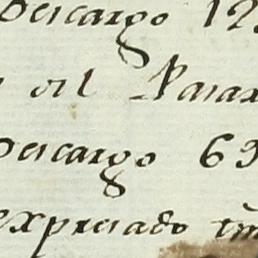 Descargo 12
del Parax
Descargo 69
expresado tm